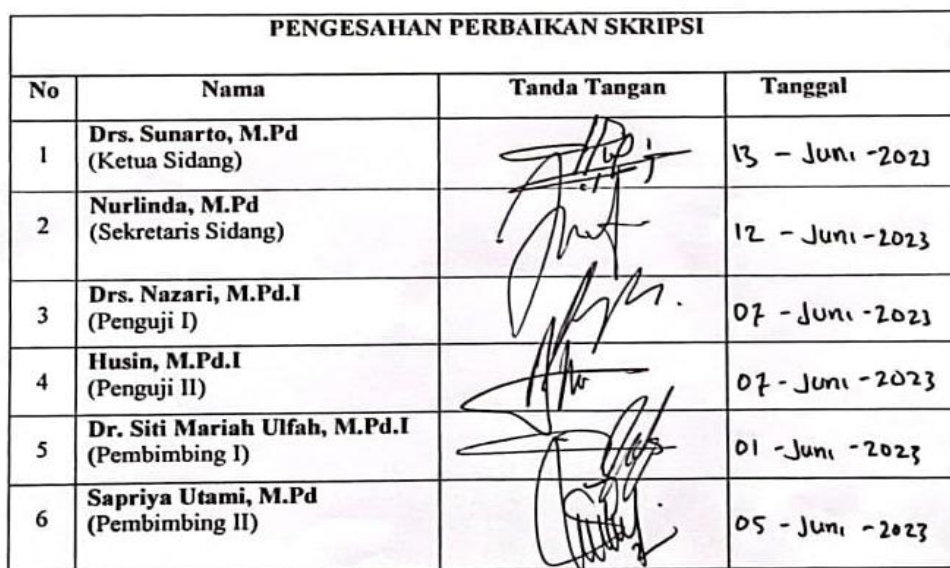 PENGESAHAN PERBAIKAN SKRIPSI
No Nama Tanda Tangan Tanggal
1 Drs. Sunarto, M.Pd
(Ketua Sidang)
13 - Juni - 2023
2 Nurlinda, M.Pd
(Sekretaris Sidang)
12 - Juni - 2023
3 Drs. Nazari, M.Pd.I
(Penguji I)
07 - Juni - 2023
4 Husin, M.Pd.I
(Penguji II)
07 - Juni - 2023
5 Dr. Siti Mariah Ulfah, M.Pd.I
(Pembimbing I)
01 - Juni - 2023
6 Sapriya Utami, M.Pd
(Pembimbing II)
05 - Juni - 2023